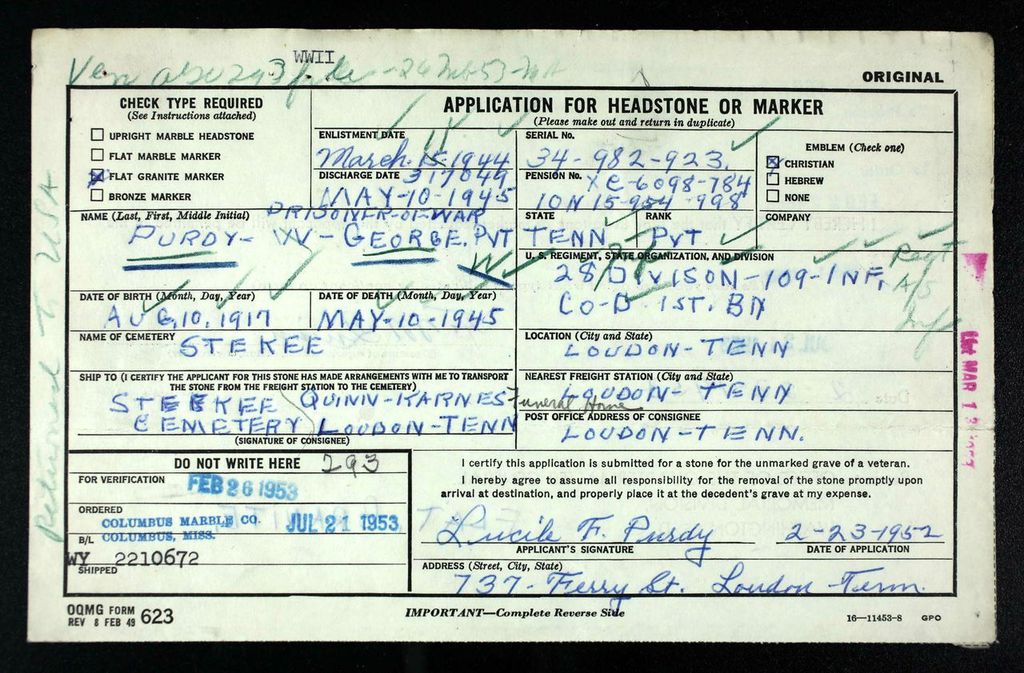 WWII
ORIGINAL
CHECK TYPE REQUIRED
(See Instructions attached)
UPRIGHT MARBLE HEADSTONE
FLAT MARBLE MARKER
FLAT GRANITE MARKER
BRONZE MARKER
APPLICATION FOR HEADSTONE OR MARKER
(Please make out and return in duplicate)
ENLISTMENT DATE
March-15-1944
DISCHARGE DATE 317044
MAY-10-1945
SERIAL No.
34-982-923.
PENSION No. XC-6098-784
10N 15-954-998
EMBLEM (Check one)
CHRISTIAN
HEBREW
NONE
NAME (Last, First, Middle Initial) PRISONER-OF-WAR
PURDY- W- GEORGE. PVT
STATE
TENN
RANK
PVT
COMPANY
U. S. REGIMENT, STATE ORGANIZATION, AND DIVISION
28 DIVISON-109-INF,
CO-D 1ST. BN
Regt
Inf
DATE OF BIRTH (Month, Day, Year)
AUG, 10, 1917
DATE OF DEATH (Month, Day, Year)
MAY-10-1945
NAME OF CEMETERY
STEKEE
LOCATION (City and State)
LOUDON-TENN
SHIP TO (I CERTIFY THE APPLICANT FOR THIS STONE HAS MADE ARRANGEMENTS WITH ME TO TRANSPORT
THE STONE FROM THE FREIGHT STATION TO THE CEMETERY)
STEEKEE QUINN-KARNES Funeral Home
CEMETERY LOUDON-TENN
(SIGNATURE OF CONSIGNEE)
NEAREST FREIGHT STATION (City and State)
LOUDON-TENN
POST OFFICE ADDRESS OF CONSIGNEE
LOUDON-TENN.
DO NOT WRITE HERE 293
FOR VERIFICATION
FEB 26 1953
ORDERED
COLUMBUS MARBLE CO.
COLUMBUS, MISS.
JUL 21 1953
B/L
WY 2210672
SHIPPED
I certify this application is submitted for a stone for the unmarked grave of a veteran.
I hereby agree to assume all responsibility for the removal of the stone promptly upon
arrival at destination, and properly place it at the decedent's grave at my expense.
Lucile F. Purdy
APPLICANT'S SIGNATURE
2-23-1952
DATE OF APPLICATION
ADDRESS (Street, City, State)
737- Ferry St. Loudon-Tenn.
OQMG FORM
REV 8 FEB 49 623
IMPORTANT—Complete Reverse Side
16—11453-8 GPO